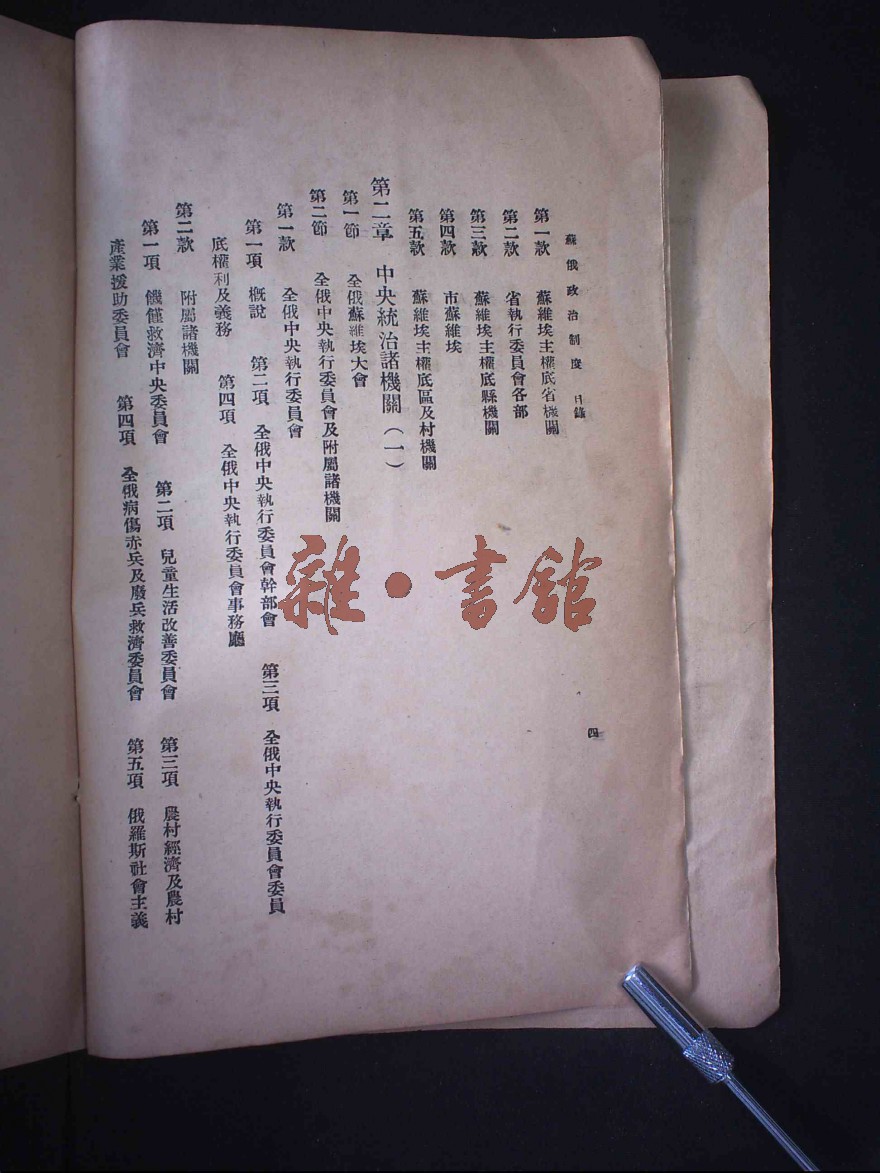 蘇俄政治制度 目錄
四
第一款 蘇維埃主權底省機關
第二款 省執行委員會各部
第三款 蘇維埃主權底縣機關
第四款 市蘇維埃
第五款 蘇維埃主權底區及村機關
第二章 中央統治諸機關(一)
第一節 全俄蘇維埃大會
第二節 全俄中央執行委員會及附屬諸機關
第一款 全俄中央執行委員會
第一項 概說 第二項 全俄中央執行委員會幹部會 第三項 全俄中央執行委員會委員
底權利及義務 第四項 全俄中央執行委員會事務廳
第二款 附屬諸機關
第一項 饑僅救濟中央委員會 第二項 兒童生活改善委員會 第三項 農村經濟及農村
產業援助委員會 第四項 全俄病傷赤兵及廢兵救濟委員會 第五項 俄羅斯社會主義
雜·書館